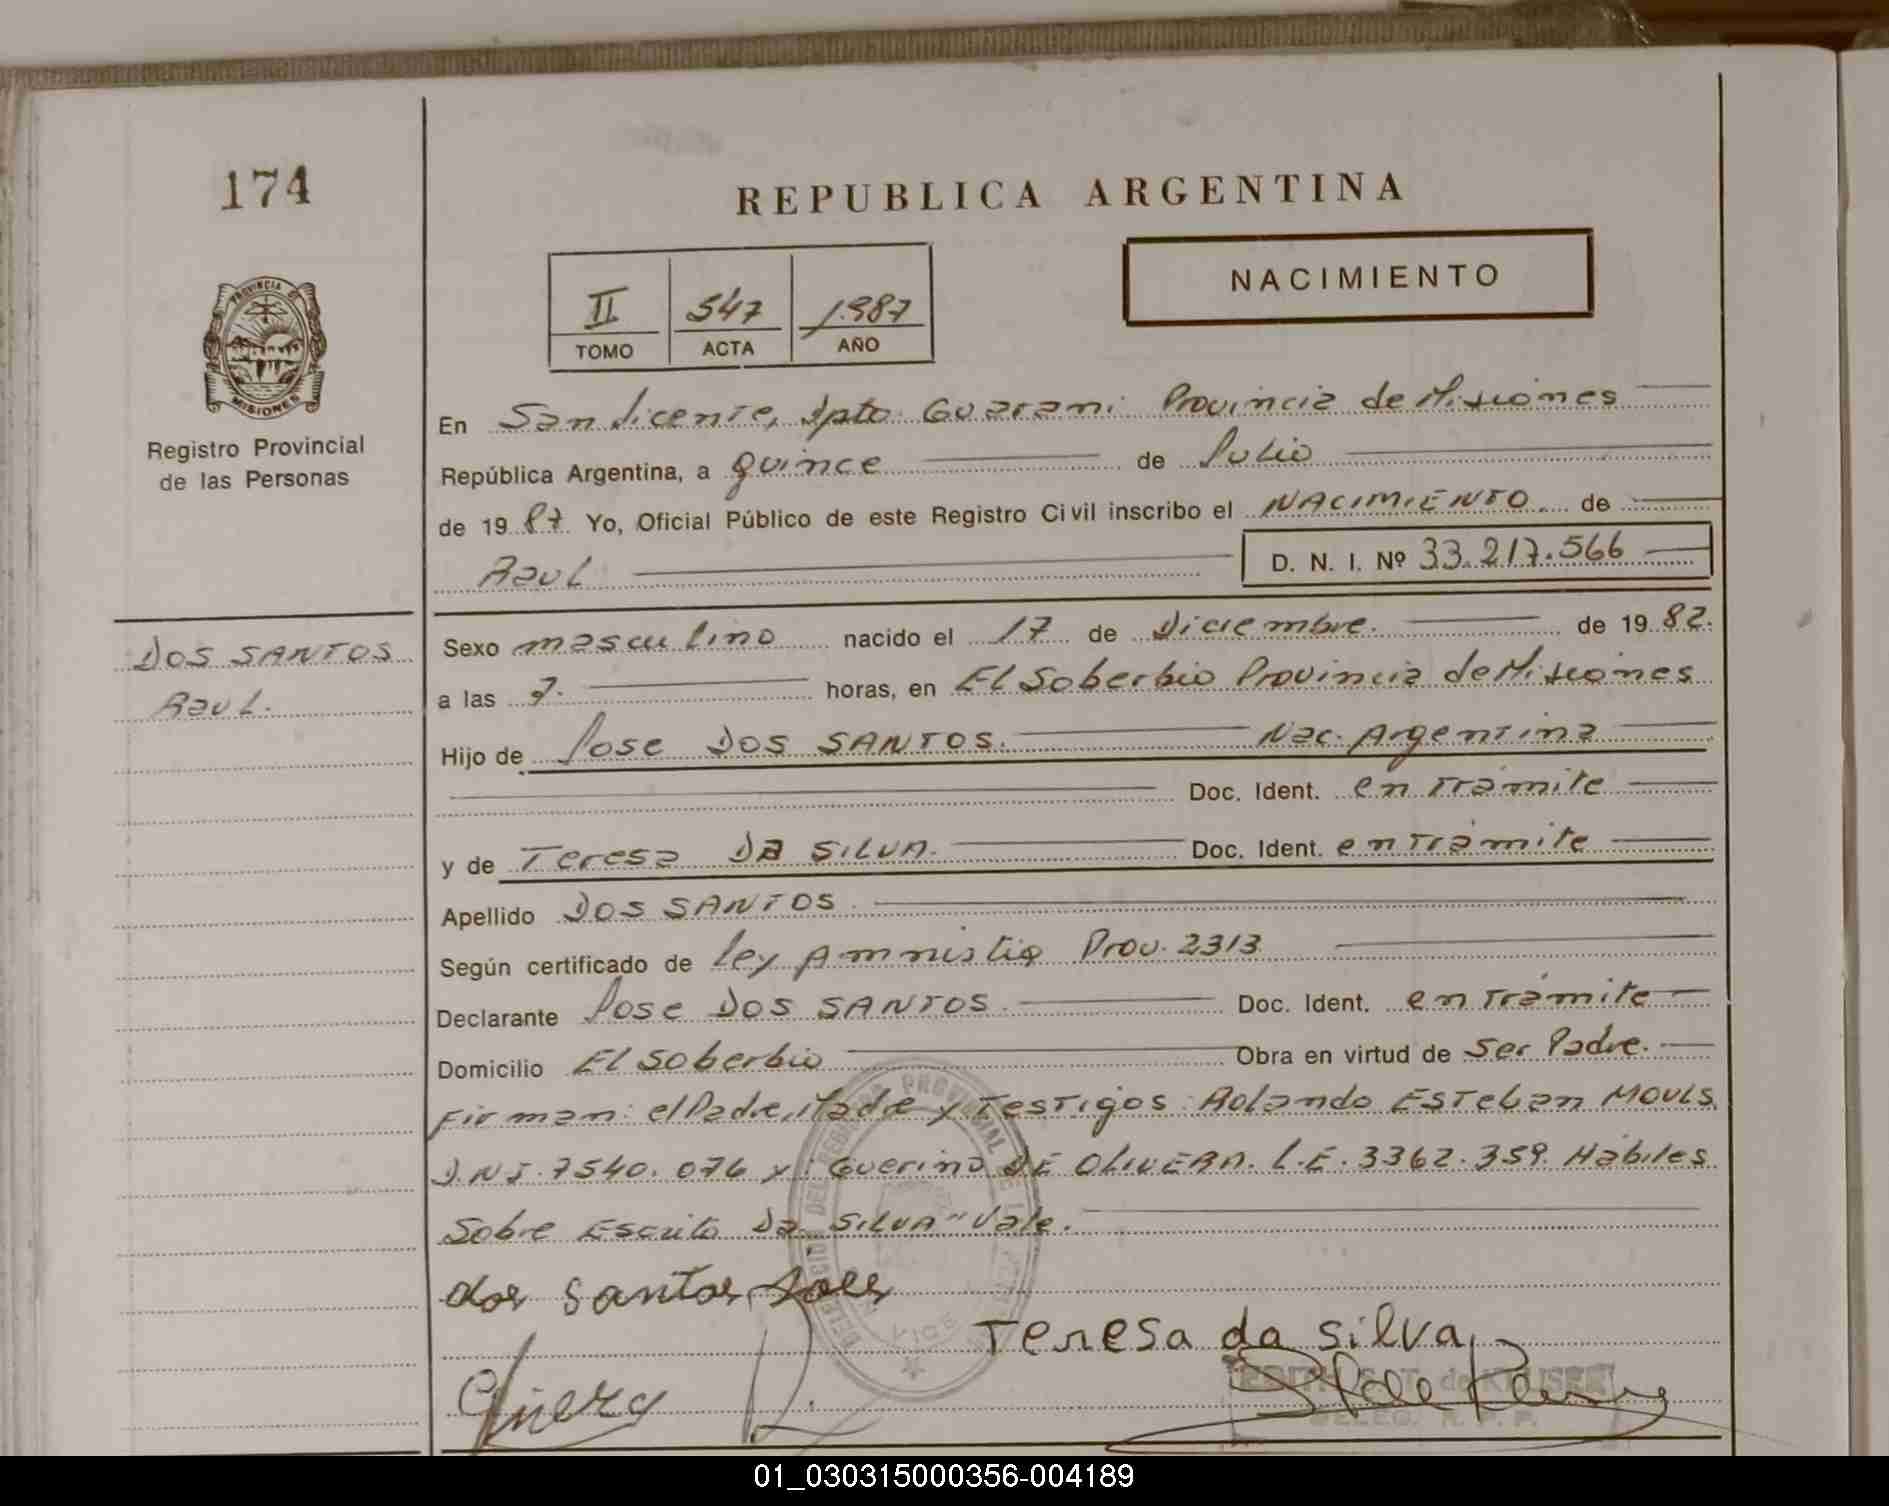 174
REPUBLICA ARGENTINA
II 547 1.987
TOMO ACTA AÑO
NACIMIENTO
PROVINCIA DE
MISIONES
Registro Provincial
de las Personas
En San Vicente, Dpto. Guarani Provincia de Misiones
República Argentina, a quince de Julio
de 19 87 Yo, Oficial Público de este Registro Civil inscribo el NACIMIENTO de
Raul D. N. I. Nº 33.217.566
DOS SANTOS
Raul.
Sexo masculino nacido el 17 de Diciembre. de 19 82.
a las 7. horas, en El Soberbio Provincia de Misiones
Hijo de Jose DOS SANTOS. Nac. Argentina
Doc. Ident. en trámite
y de Teresa DA SILVA. Doc. Ident. en trámite
Apellido DOS SANTOS.
Según certificado de Ley Amnistia Prov. 2313
Declarante Jose DOS SANTOS. Doc. Ident. en trámite
Domicilio El Soberbio Obra en virtud de Ser Padre.
Firman: el Padre, Madre y Testigos: Rolando Esteban MOULS
D.N.I. 7540.076 y: Guerino DE OLIVERA. L.E. 3362.359. Hábiles
Sobre Escrito Da SILVA" Vale.
dos santos Jose
Teresa da silva
DELEG. R. P. P.
01_030315000356-004189